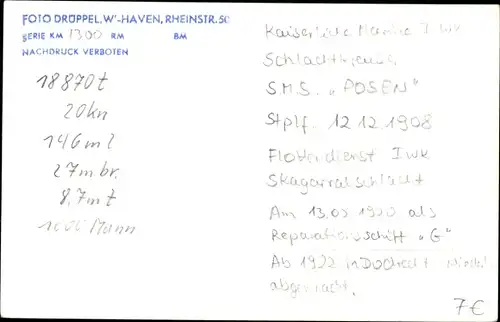 FOTO DRÜPPEL, W'-HAVEN, RHEINSTR. 50
SERIE KM 1300 RM BM
NACHDRUCK VERBOTEN
18870t
20kn
146m l
27m br.
8,7m t
Mann
Kaiserliche Marine I WK
S.M.S. „POSEN"
Stplf. 12 12.1908
Flottendienst I WK
Skagerrakschlacht
Am 13.05 1920 als
Reparationsschiff „G"
Ab 1922 in Dordrecht
abgewrackt.
7€